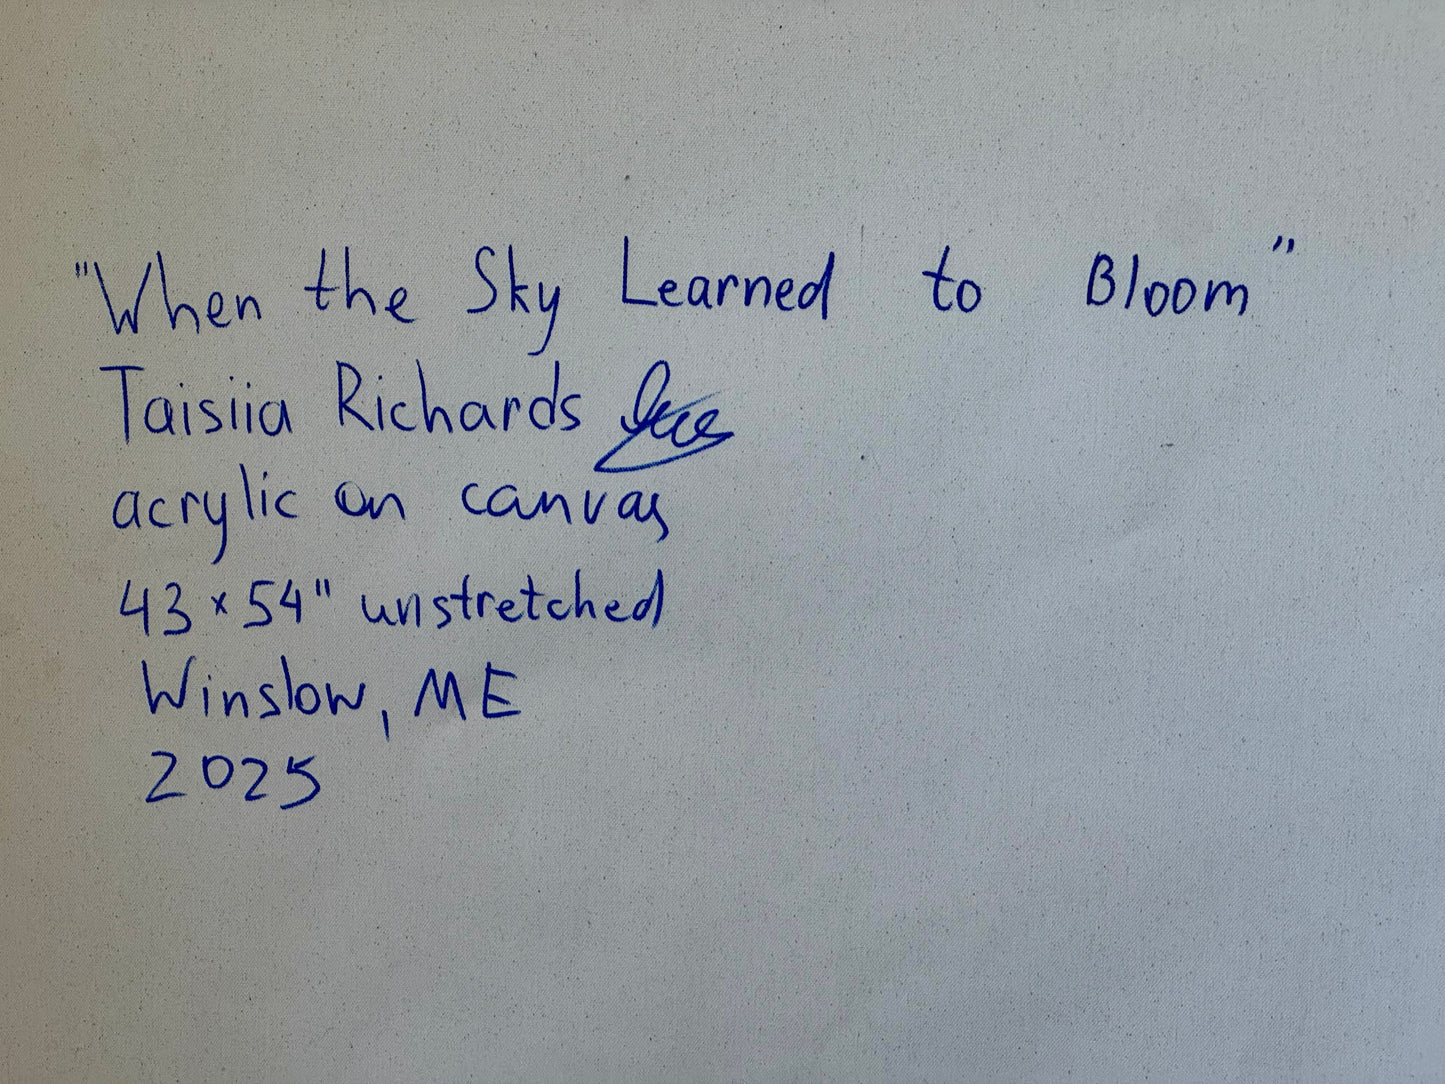 "When the Sky Learned to Bloom"
Taisiia Richards
acrylic on canvas
43 x 54" unstretched
Winslow, ME
2025